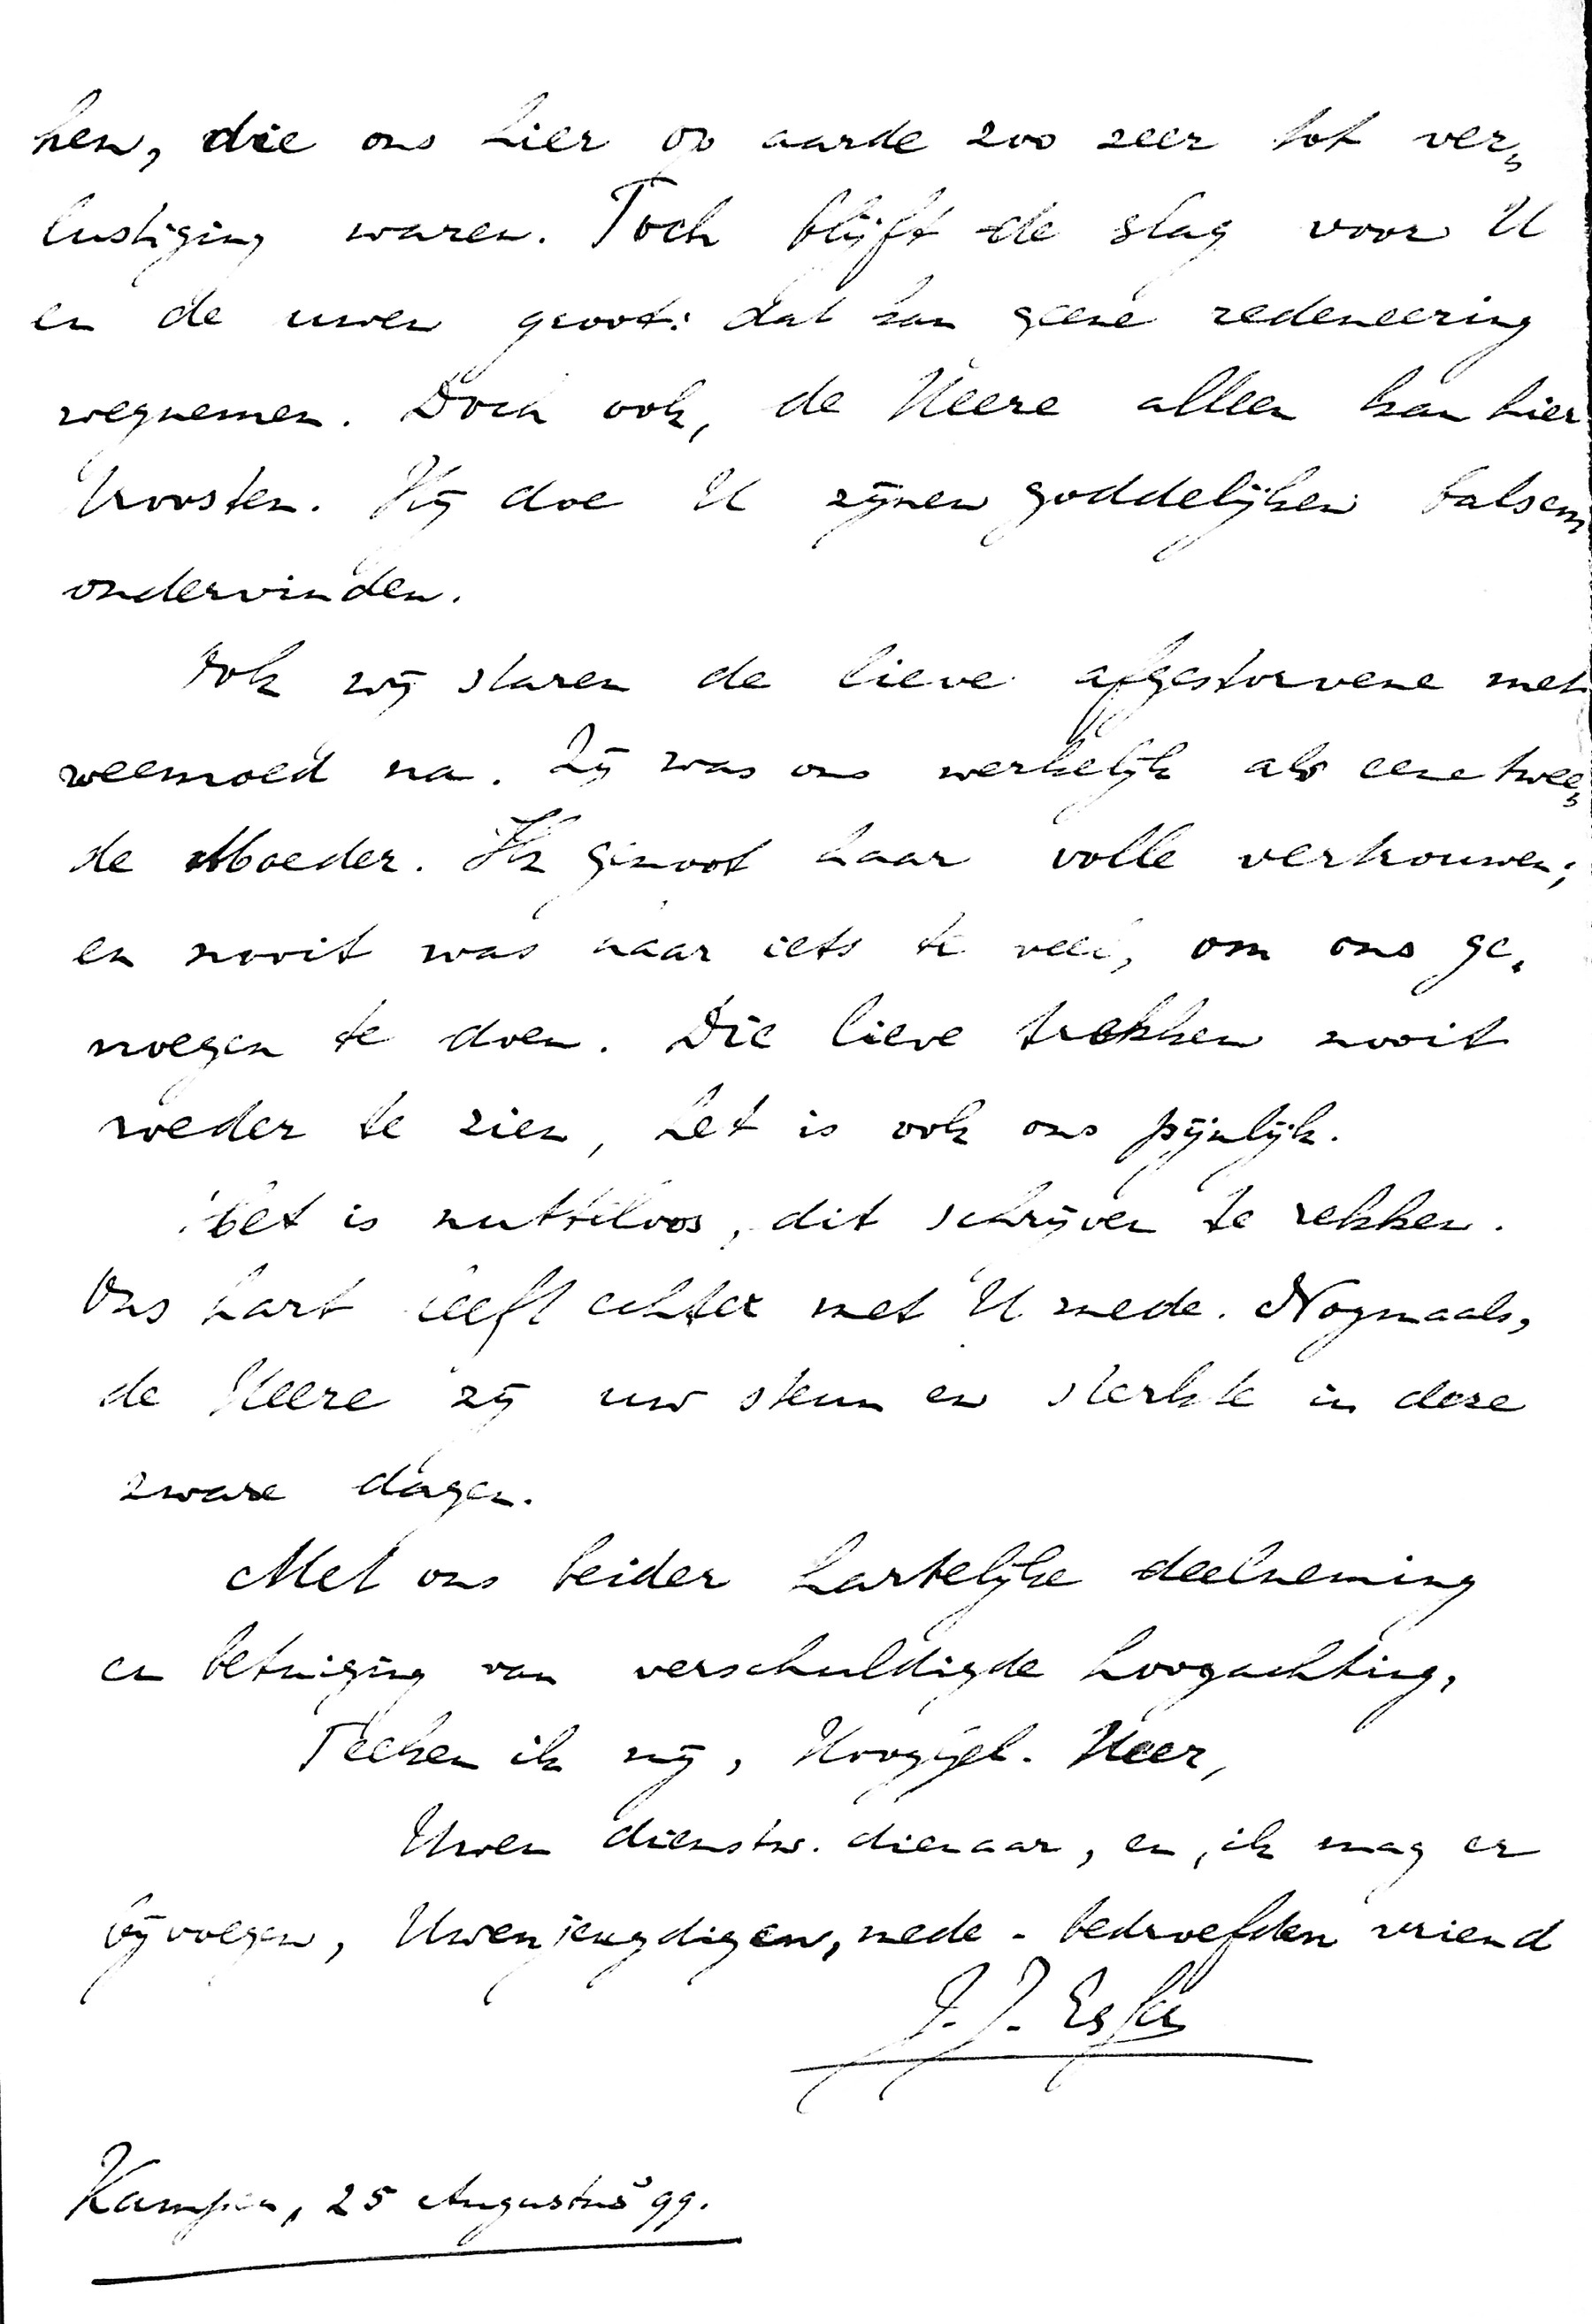 hen, die ons hier op aarde zoo zeer tot ver„
lustiging waren. Toch blijft de slag voor U
en de uwen groot: dat kan geene redeneering
wegnemen. Doch ook, de Heere alleen kan hier
troosten. Hij doe U zijnen goddelijken balsem
ondervinden.
Ook wij staren de lieve afgestorvene met
weemoed na. Zij was ons werkelijk als eene twee„
de Moeder. Ik genoot haar volle vertrouwen;
en nooit was haar iets te veel, om ons ge„
noegen te doen. Die lieve trekken nooit
weder te zien, het is ook ons pijnlijk.
Het is nutteloos, dit schrijven te rekken.
Ons hart leeft echter met U mede. Nogmaals,
de Heere zij uw steun en sterkte in deze
zware dagen.
Met ons beider hartelijke deelneming
en betuiging van verschuldigde hoogachting,
Teeken ik mij, Hoogijel. Heer,
Uwen dienstw. dienaar, en, ik mag er
bijvoegen, Uwen jeugdigen, mede-bedroefden vriend
J. J. Esser
Kampen, 25 Augustus 99.